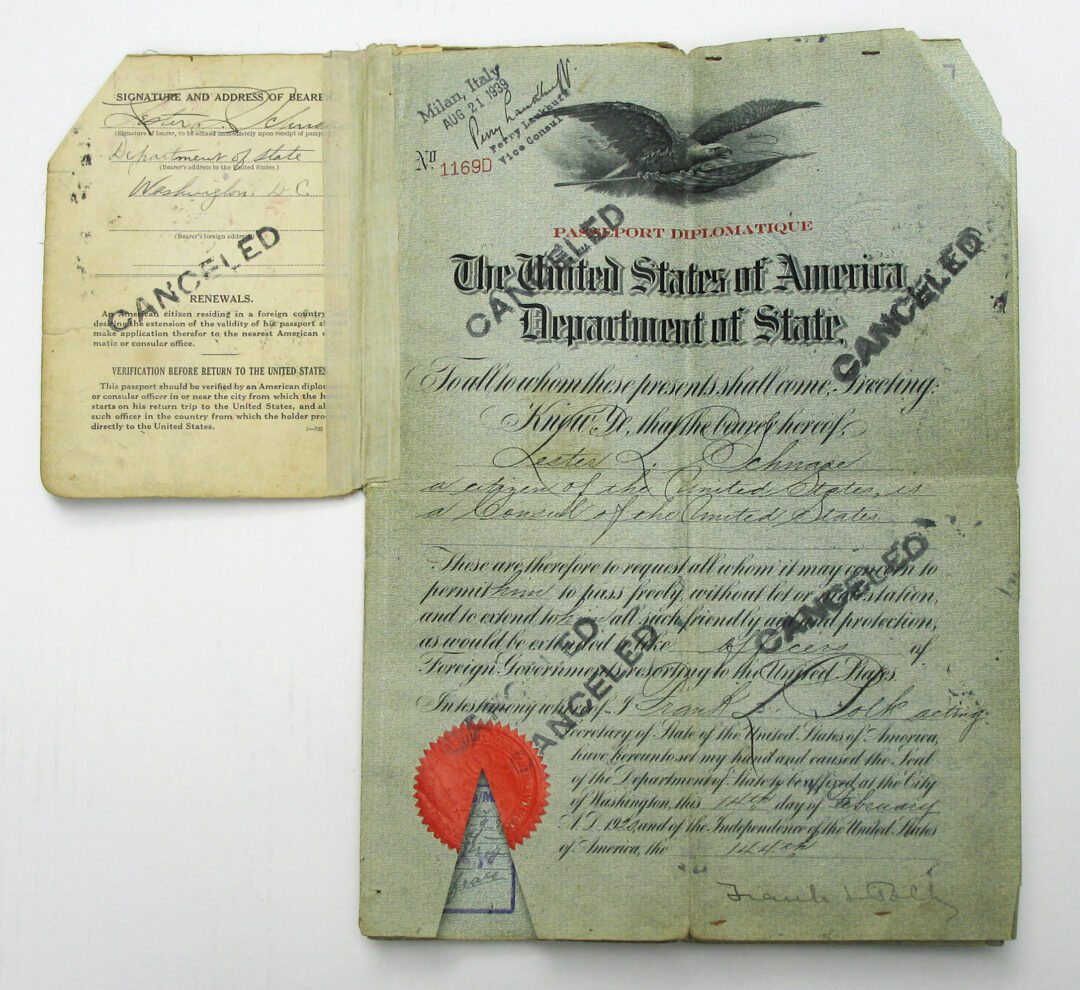 SIGNATURE AND ADDRESS OF BEARE
Lester L. Schnare
(Signature of bearer, to be affixed immediately upon receipt of passpo
Department of State
(Bearer's address in the United States.)
Washington, D.C.
(Bearer's foreign address
CANCELED
RENEWALS.
An American citizen residing in a foreign country
desiring the extension of the validity of his passport s
make application therefor to the nearest American
matic or consular office.
VERIFICATION BEFORE RETURN TO THE UNITED STATES
This passport should be verified by an American diplo
or consular officer in or near the city from which the h
starts on his return trip to the United States, and al
such officer in the country from which the holder pro
directly to the United States.
1—722
Milan, Italy
AUG 21 1939
Perry
Vice Consul
No 1169D
PASSEPORT DIPLOMATIQUE
CANCELED
The United States of America,
CANCELED
Department of State,
To all to whom these presents shall come, Greeting:
Know Ye, that the bearer hereof,
Lester L. Schnare
a citizen of the United States, is
a Consul of the United States
These are therefore to request all whom it may concern to
permit him to pass freely, without let or molestation,
and to extend to him all such friendly aid and protection,
CANCELED
as would be extended to like Officers of
Foreign Governments resorting to the United States.
CANCELED
CANCELED
In testimony whereof, I Frank L. Polk acting
Secretary of State of the United States of America,
have hereunto set my hand and caused the Seal
of the Department of State to be affixed at the City
of Washington, this 14th day of February
A.D. 1920, and of the Independence of the United States
of America, the 144th
Frank L Polk